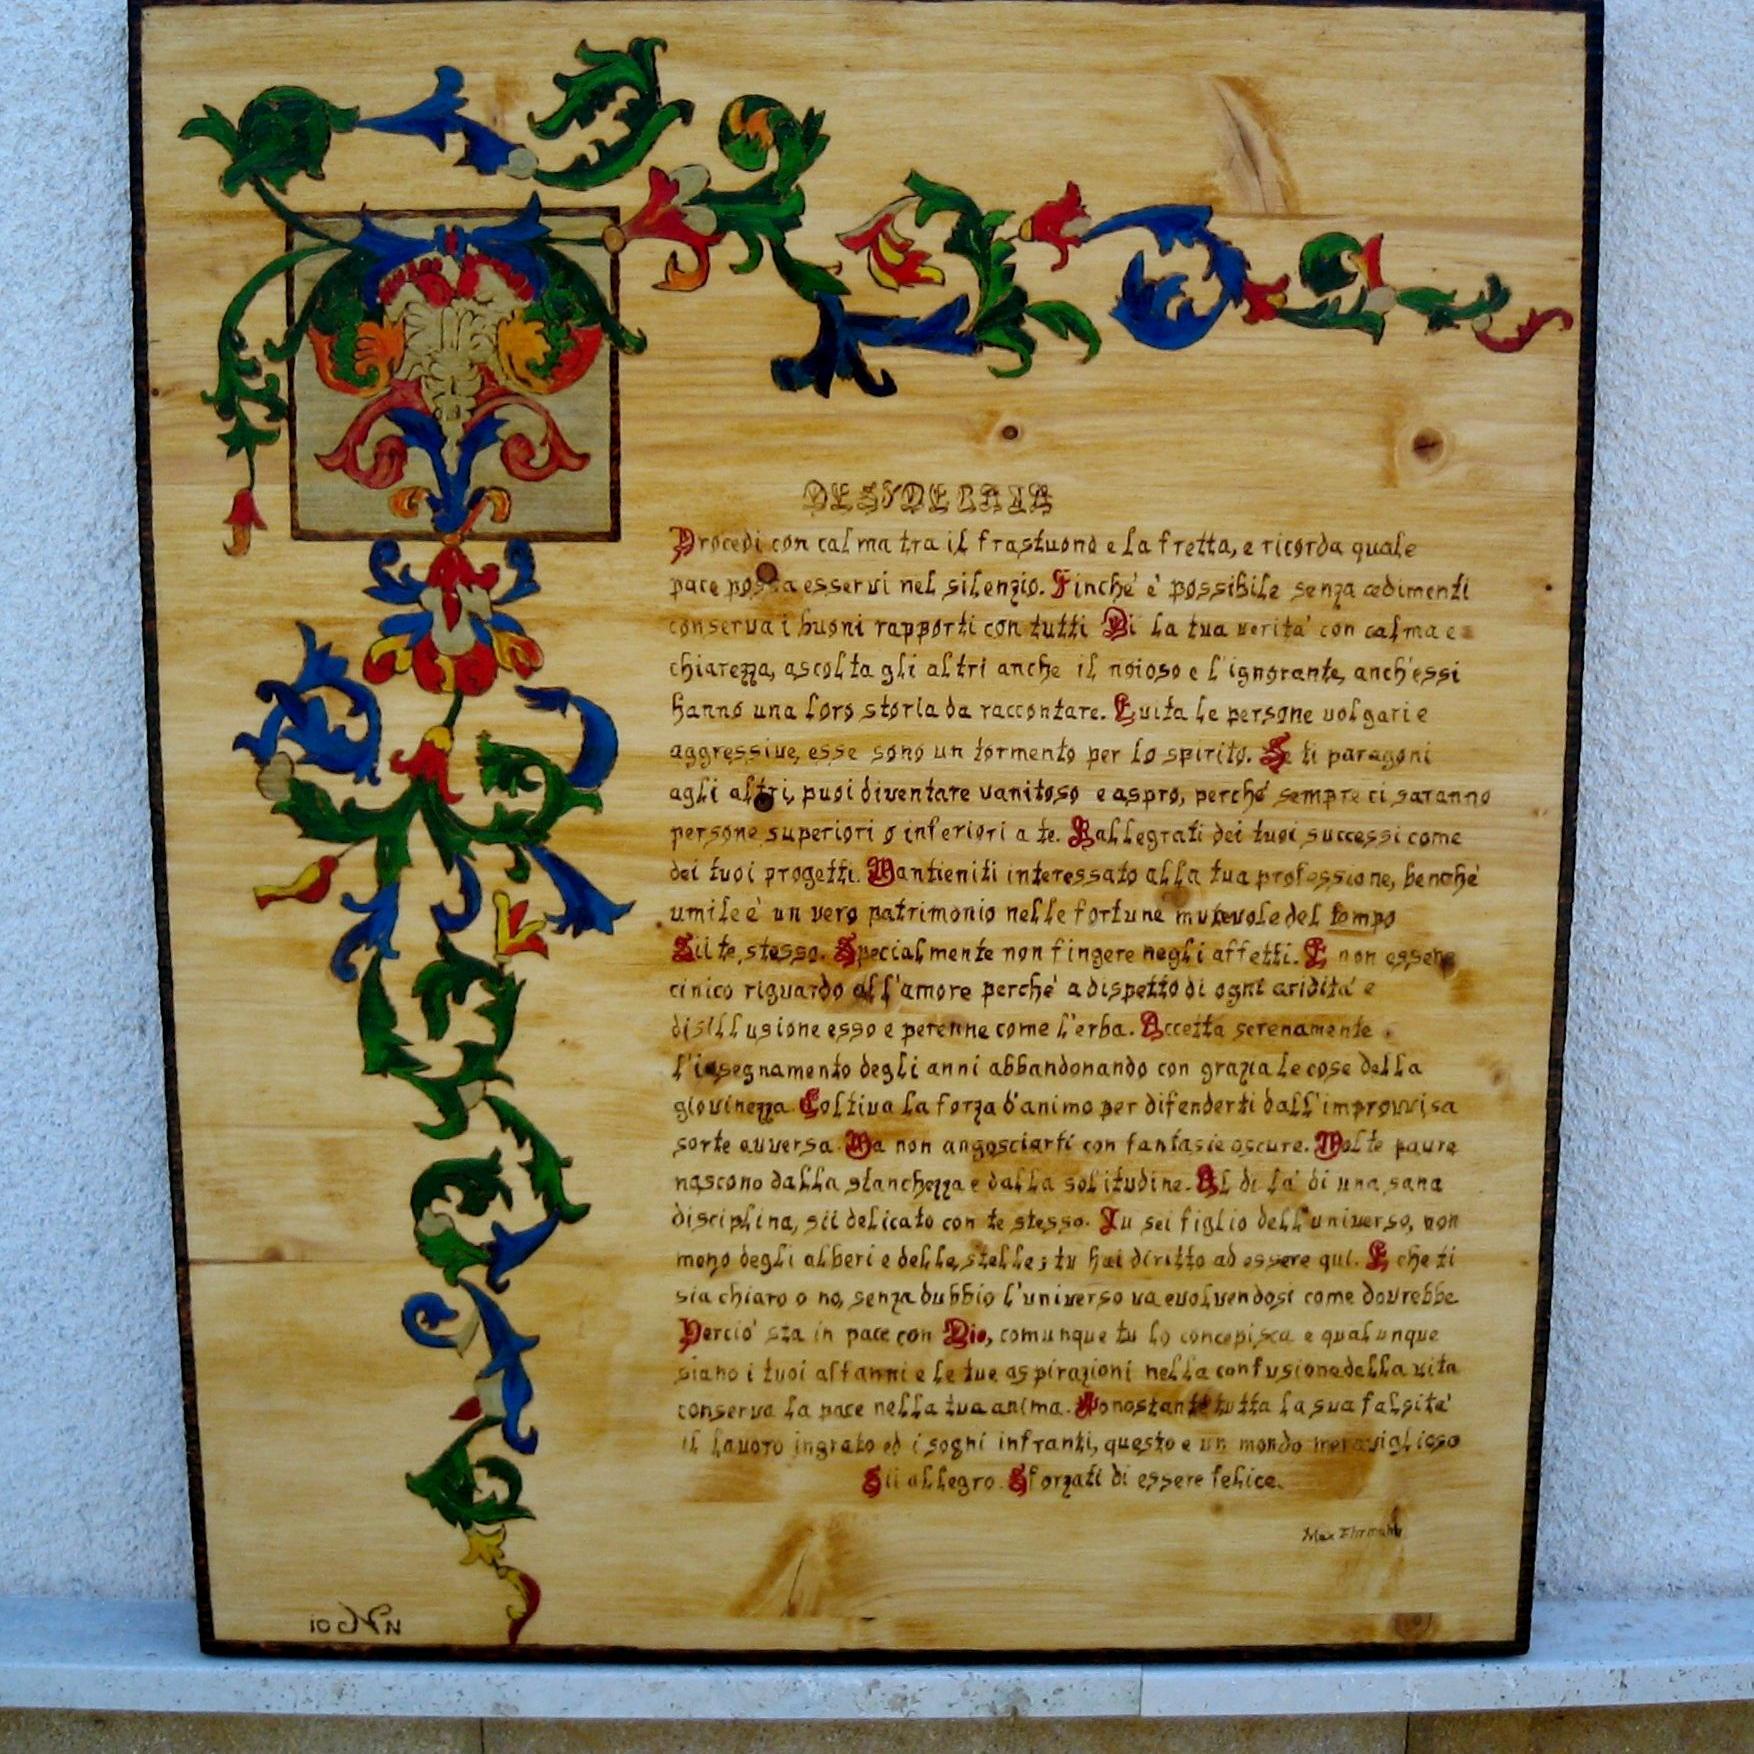 DESYDERATA
Procedi con calma tra il frastuono e la fretta, e ricorda quale
pace possa esservi nel silenzio. Finché è possibile senza cedimenti
conserva i buoni rapporti con tutti Di la tua verita' con calma e
chiarezza, ascolta gli altri anche il noioso e l'ignorante, anch'essi
hanno una loro storia da raccontare. Evita le persone volgari e
aggressive, esse sono un tormento per lo spirito. Se ti paragoni
agli altri, puoi diventare vanitoso e aspro, perché sempre ci saranno
persone superiori o inferiori a te. Rallegrati dei tuoi successi come
dei tuoi progetti. Mantieniti interessato alla tua professione, benché
umile è un vero patrimonio nelle fortune mutevole del tempo
Sii te stesso. Specialmente non fingere negli affetti. E non essere
cinico riguardo all'amore perché a dispetto di ogni aridita' e
disillusione esso e perenne come l'erba. Accetta serenamente
l'insegnamento degli anni abbandonando con grazia le cose della
giovinezza. Coltiva la forza d'animo per difenderti dall'improvvisa
sorte avversa. Ma non angosciarti con fantasie oscure. Molte paure
nascono dalla stanchezza e dalla solitudine. Al di la' di una sana
disciplina, sii delicato con te stesso. Tu sei figlio dell'universo, non
meno degli alberi e delle stelle; tu hai diritto ad essere qui. E che ti
sia chiaro o no, senza dubbio l'universo va evolvendosi come dovrebbe
Percio' sta in pace con Dio, comunque tu lo concepisca e qualunque
siano i tuoi affanni e le tue aspirazioni nella confusione della vita
conserva la pace nella tua anima. Nonostante tutta la sua falsita'
il lavoro ingrato ed i sogni infranti, questo e un mondo meraviglioso
Sii allegro. Sforzati di essere felice.
Max Ehrmann